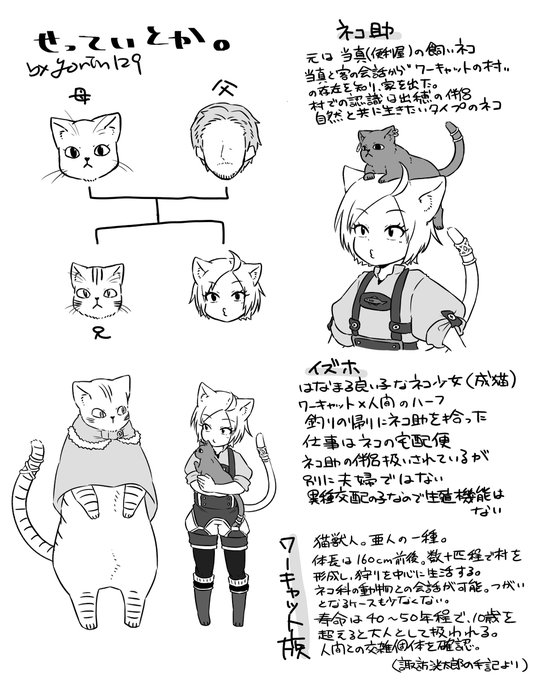 せっていとか。
by gonin129
母
父
兄
ネコ助
元は 当真(便利屋)の飼いネコ
当真と客の会話から"ワーキャットの村"
の存在を知り、家を出た。
村での認識は出穂の伴侶
自然と共に生きたいタイプのネコ
イズホ
はなまる良い子なネコ少女(成猫)
ワーキャット×人間のハーフ
釣りの帰りにネコ助を拾った
仕事はネコの宅配便
ネコ助の伴侶扱いされているが
別に夫婦ではない
異種交配の子なので生殖機能は
ない
ワーキャット族
猫獣人。亜人の一種。
体長は160cm前後。数十匹程で村を
形成し、狩りを中心に生活する。
ネコ科の動物との会話が可能。つがい
となるケースも少なくない。
寿命は40〜50年程で、10歳を
超えると大人として扱われる。
人間との交雑個体を確認。
(諏訪洸太郎の手記より)